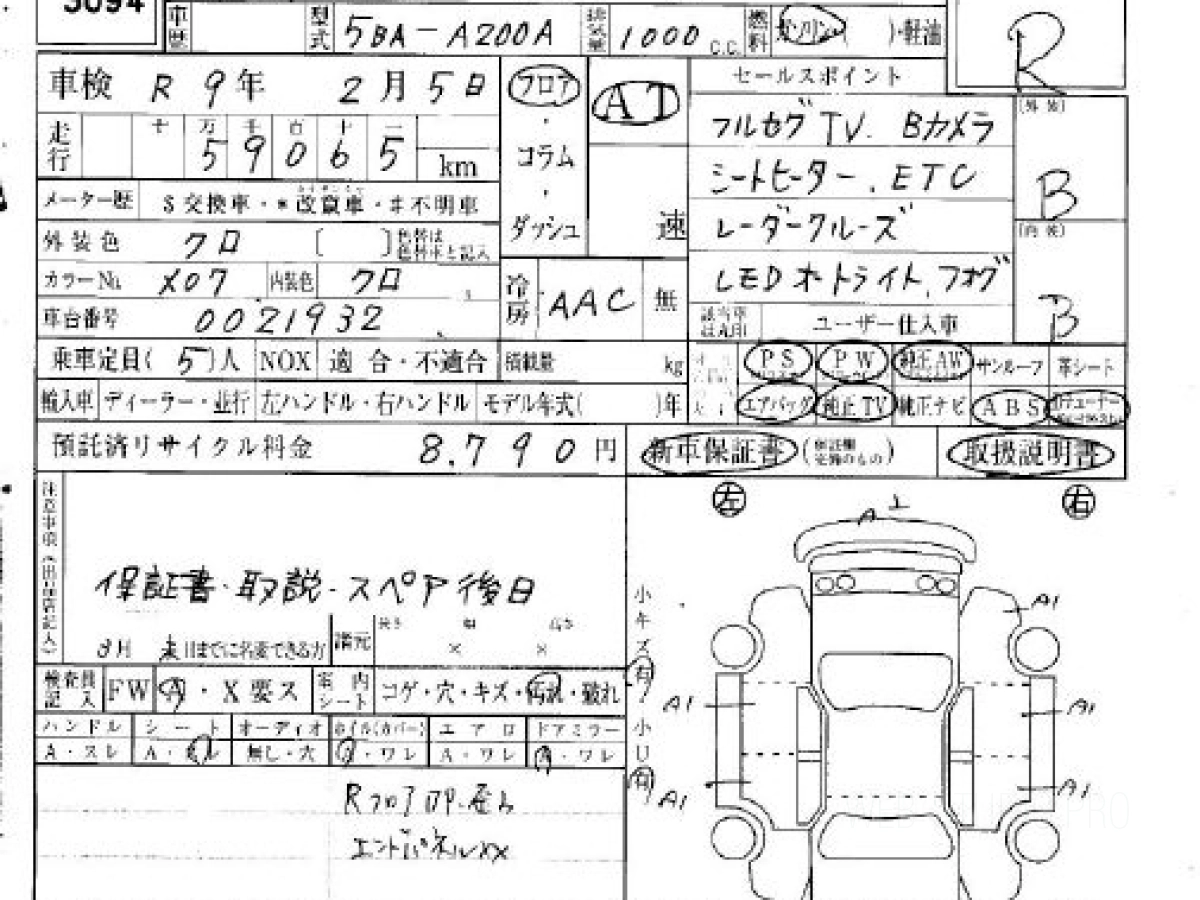 5094
車歴 型式 5BA-A200A 排気量 1000 C.C. 燃料 ガソリン( )・軽油 R
車検 R 9年 2月 5日 フロア AT セールスポイント
走行 十 万 千 百 十 一 5 9 0 6 5 km ・コラム フルセグTV. Bカメラ [外装]
シートヒーター. ETC B
メーター歴 $交換車・*改竄車・#不明車 ・ダッシュ 速 レーダークルーズ [内装]
外装色 クロ [ ]色替は色替車と記入
カラーNo. X07 内装色 クロ 冷房 AAC 無 LEDオートライト,フォグ B
車台番号 0021932 該当車は○印 ユーザー仕入車
乗車定員( 5 )人 NOX 適合・不適合 積載量 kg PS PW 純正AW サンルーフ 革シート
輸入車 ディーラー・並行 左ハンドル・右ハンドル モデル年式( )年 エアバッグ 純正TV 純正ナビ ABS
預託済リサイクル料金 8,790 円 新車保証書 取扱説明書
左 右
保証書・取説・スペア後日
3月 末日までに名変できる方 諸元 長さ 幅 高さ × ×
検査員記入 FW A・X要ス 室内シート コゲ・穴・キズ・汚れ・破れ
ハンドル シート オーディオ ホイル(カバー) エアロ ドアミラー
A・スレ 無し・穴 ワレ A・ワレ A・ワレ
小キズ有 小U有
A1
A1
A1
A1
A1
Rフロア凹P.
エンドパネルXX